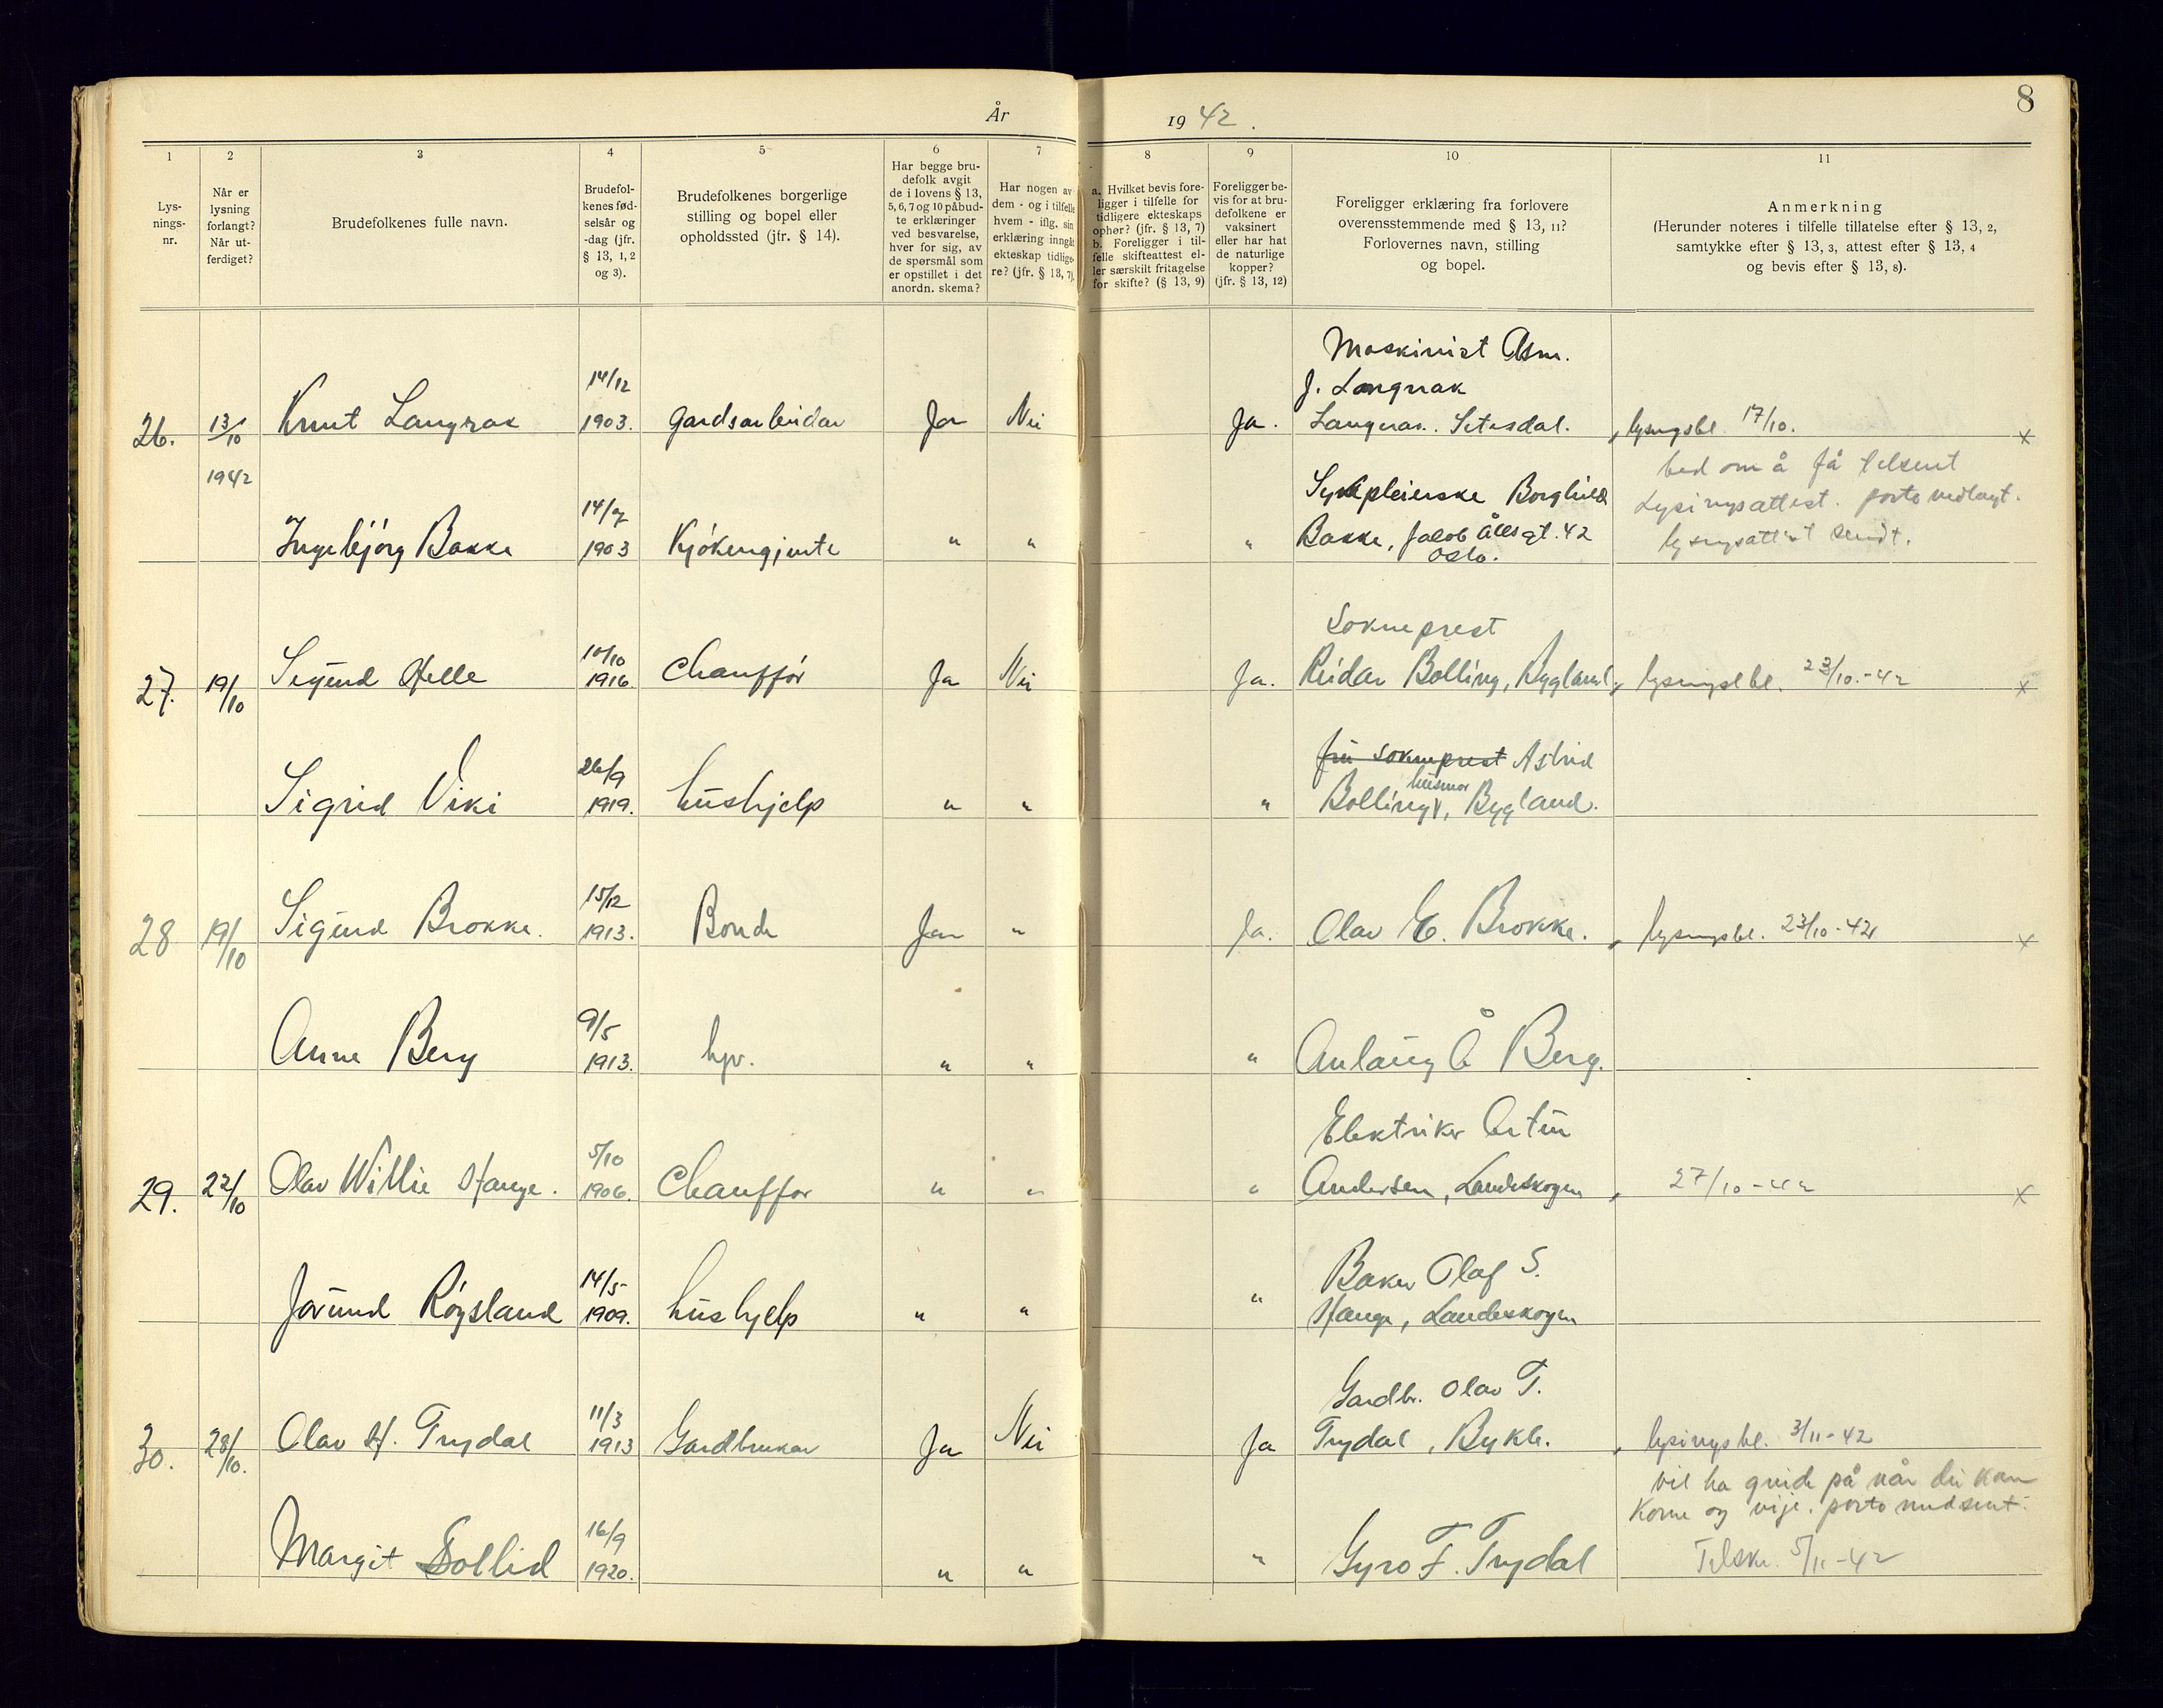 8
År 1942.
1 2 3 4 5 6 7 8 9 10 11
Lys-
nings-
nr.
Når er
lysning
forlangt?
Når ut-
ferdiget?
Brudefolkenes fulle navn.
Brudefol-
kenes fød-
selsår og
-dag (jfr.
§ 13, 1, 2
og 3).
Brudefolkenes borgerlige
stilling og bopel eller
opholdssted (jfr. § 14).
Har begge bru-
defolk avgit
de i lovens § 13,
5, 6, 7 og 10 påbud-
te erklæringer
ved besvarelse,
hver for sig, av
de spørsmål som
er opstillet i det
anordn. skema?
Har nogen av
dem - og i tilfelle
hvem - iflg. sin
erklæring inngåt
ekteskap tidlige-
re? (jfr. § 13, 7).
a. Hvilket bevis fore-
ligger i tilfelle for
tidligere ekteskaps
ophør? (jfr. § 13, 7)
b. Foreligger i til-
felle skifteattest el-
ler særskilt fritagelse
for skifte? (§ 13, 9)
Foreligger be-
vis for at bru-
defolkene er
vaksinert
eller har hat
de naturlige
kopper?
(jfr. § 13, 12)
Foreligger erklæring fra forlovere
overensstemmende med § 13, 11?
Forlovernes navn, stilling
og bopel.
Anmerkning
(Herunder noteres i tilfelle tillatelse efter § 13, 2,
samtykke efter § 13, 3, attest efter § 13, 4
og bevis efter § 13, 8).
Maskinist Asm.
J. Langrak
26. 13/10 Knut Langrak 14/12 1903. gardsarbeidar Ja Nei Ja. Langrak. Setesdal. lysingsbl. 17/10. x
1942 bed om å få tilsent
Lysingsattest. porto vedlagt.
lysingsattest sendt.
Sykepleierske Borghild
Ingebjörg Bakke 14/7 1903 Kjökengjente " " " Bakke, Jacob Ålls gt. 42
Oslo.
Sokneprest
27. 19/10 Sigurd Helle 10/10 1916. Chaufför Ja Nei Ja. Reidar Bolling, Bygland, lysingsbl. 23/10.-42 x
fru sokneprest Astrid
husmor
Sigrid Viki 26/9 1919. hushjelp " " " Bolling, Bygland.
28 19/10 Sigurd Brokke. 15/12 1913. Bonde Ja " Ja. Olav E. Brokke. lysingsbl. 23/10-42 x
Anne Berg 9/5 1913. hjv. " " " Aulaug Å Berg.
Elektriker Artur
29. 22/10 Olav Willie Hauge. 5/10 1906. Chauffør " " " Andersen, Landeskogen 27/10-42 x
Baker Olaf S.
Jorund Röysland 14/5 1909. hushjelp " " " Hauge, Landeskogen
Gardbr. Olav T.
30. 28/10. Olav H. Trydal 11/3 1913 Gardbrukar Ja Nei Ja Trydal, Bykle. lysingsbl. 3/11-42
vil ha greide på når dei kan
kome og vije. porto medsent.
Margit Sollid 16/9 1920. " " " Gyro F. Trydal Tilskr. 5/11-42